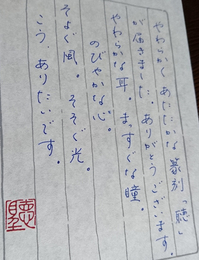 やわらかく あたたかな篆刻「聴」
が届きました。ありがとうございます。
やわらかな耳。まっすぐな瞳。
のびやかな心。
そよぐ風。そそぐ光。
こう、ありたいです。